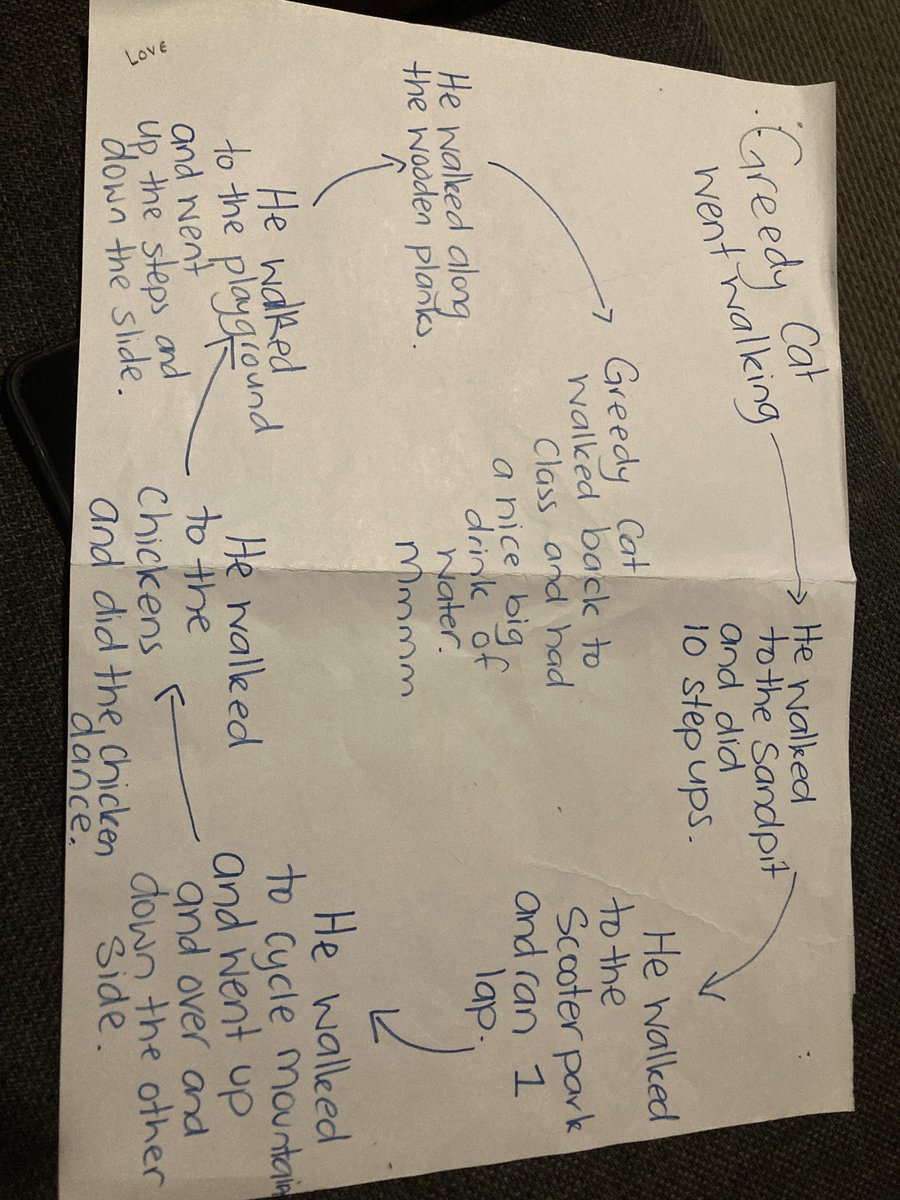 Greedy Cat
went walking
He walked
to the Sandpit
and did
10 step ups.
He walked
to the
Scooter park
and ran 1
lap.
He walked
to cycle mountain
and went up
and over and
down the other
side.
He walked
to the
chickens
and did the chicken
dance.
He walked
to the playground
and went
up the steps and
down the slide.
He walked along
the wooden planks.
Greedy Cat
walked back to
class and had
a nice big
drink of
water.
Mmmmm
LOVE